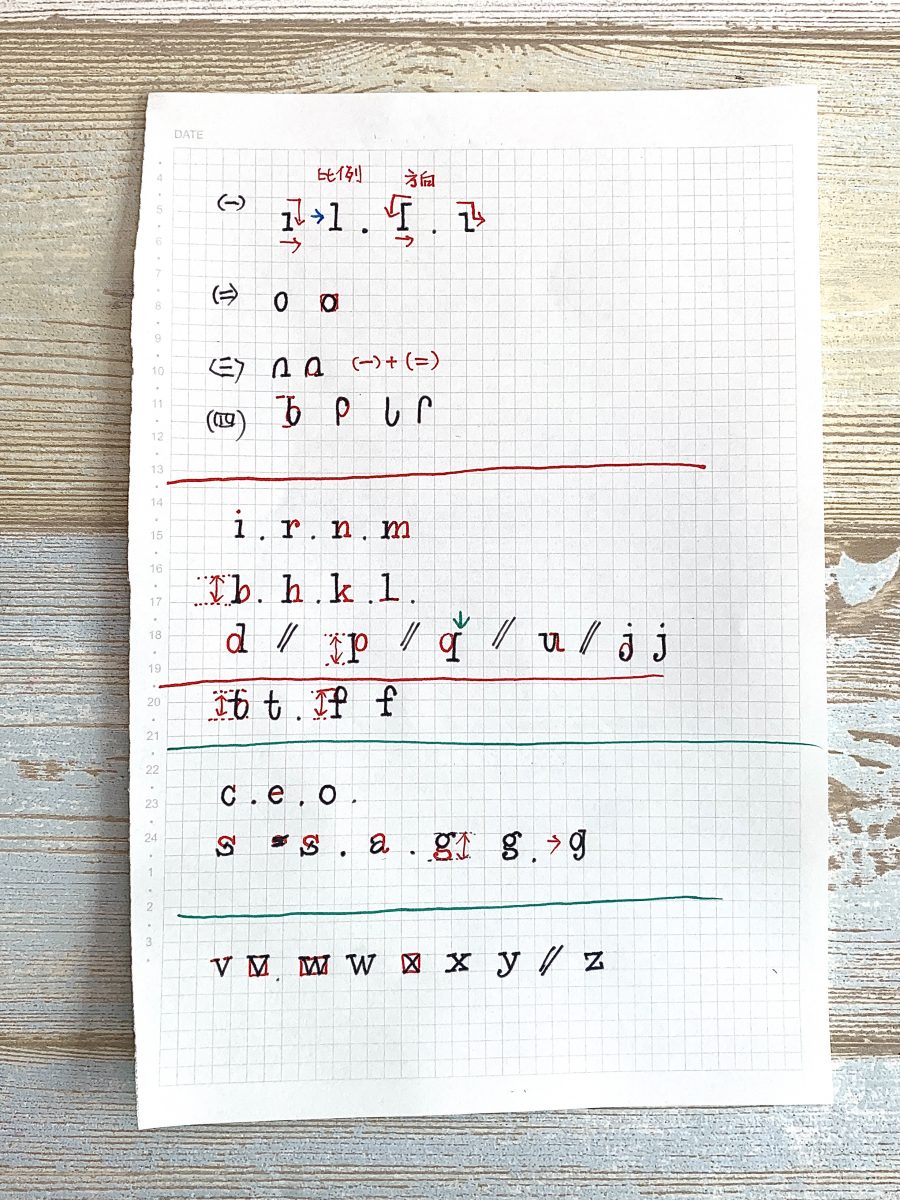 DATE
比例 方向
(一) ı → l . ſ . ɩ
(二) o o
(三) n a (一)+(二)
(四) b p
i . r . n . m
b . h . k . l .
d // p // q // u // j j
t t . f f
c . e . o .
s s . a . g g . → g
v v . w w x x y // z
4
5
6
7
8
9
10
11
12
13
14
15
16
17
18
19
20
21
22
23
24
1
2
3